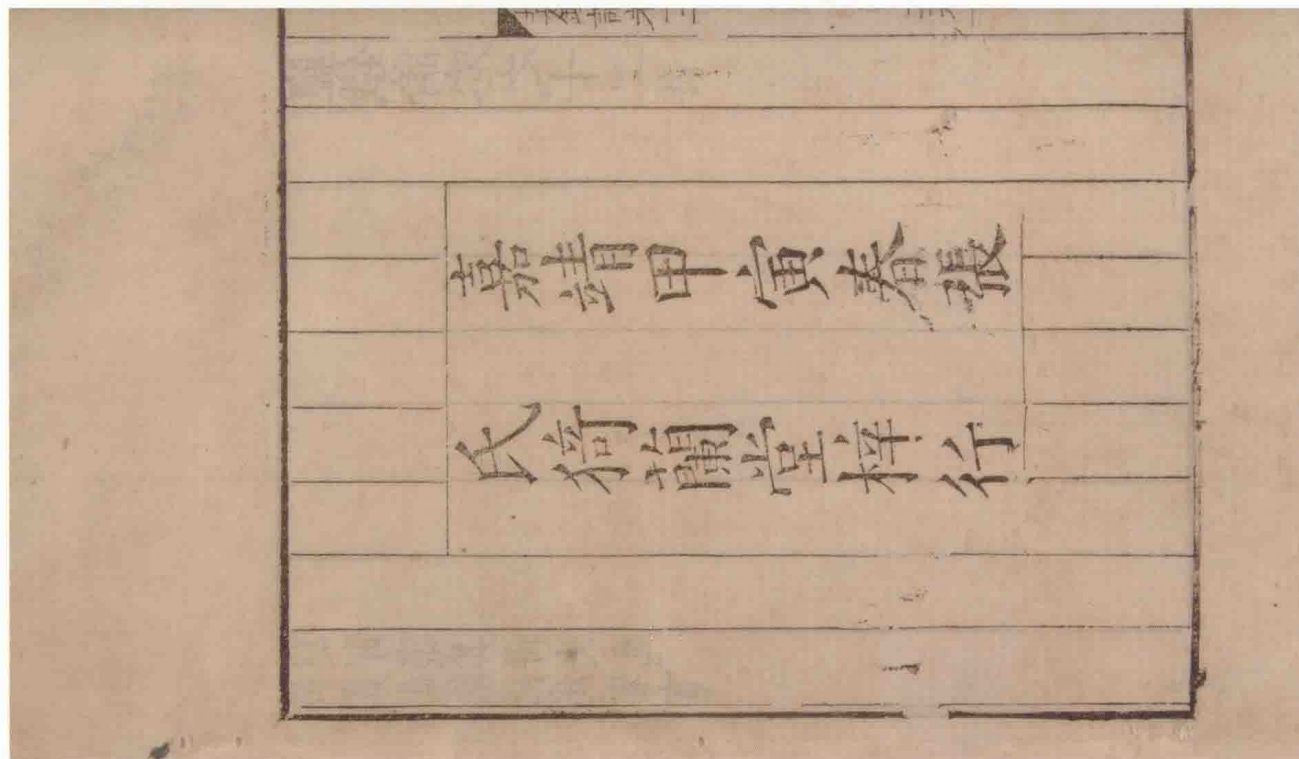 嘉靖甲寅春張
氏猗蘭堂梓行